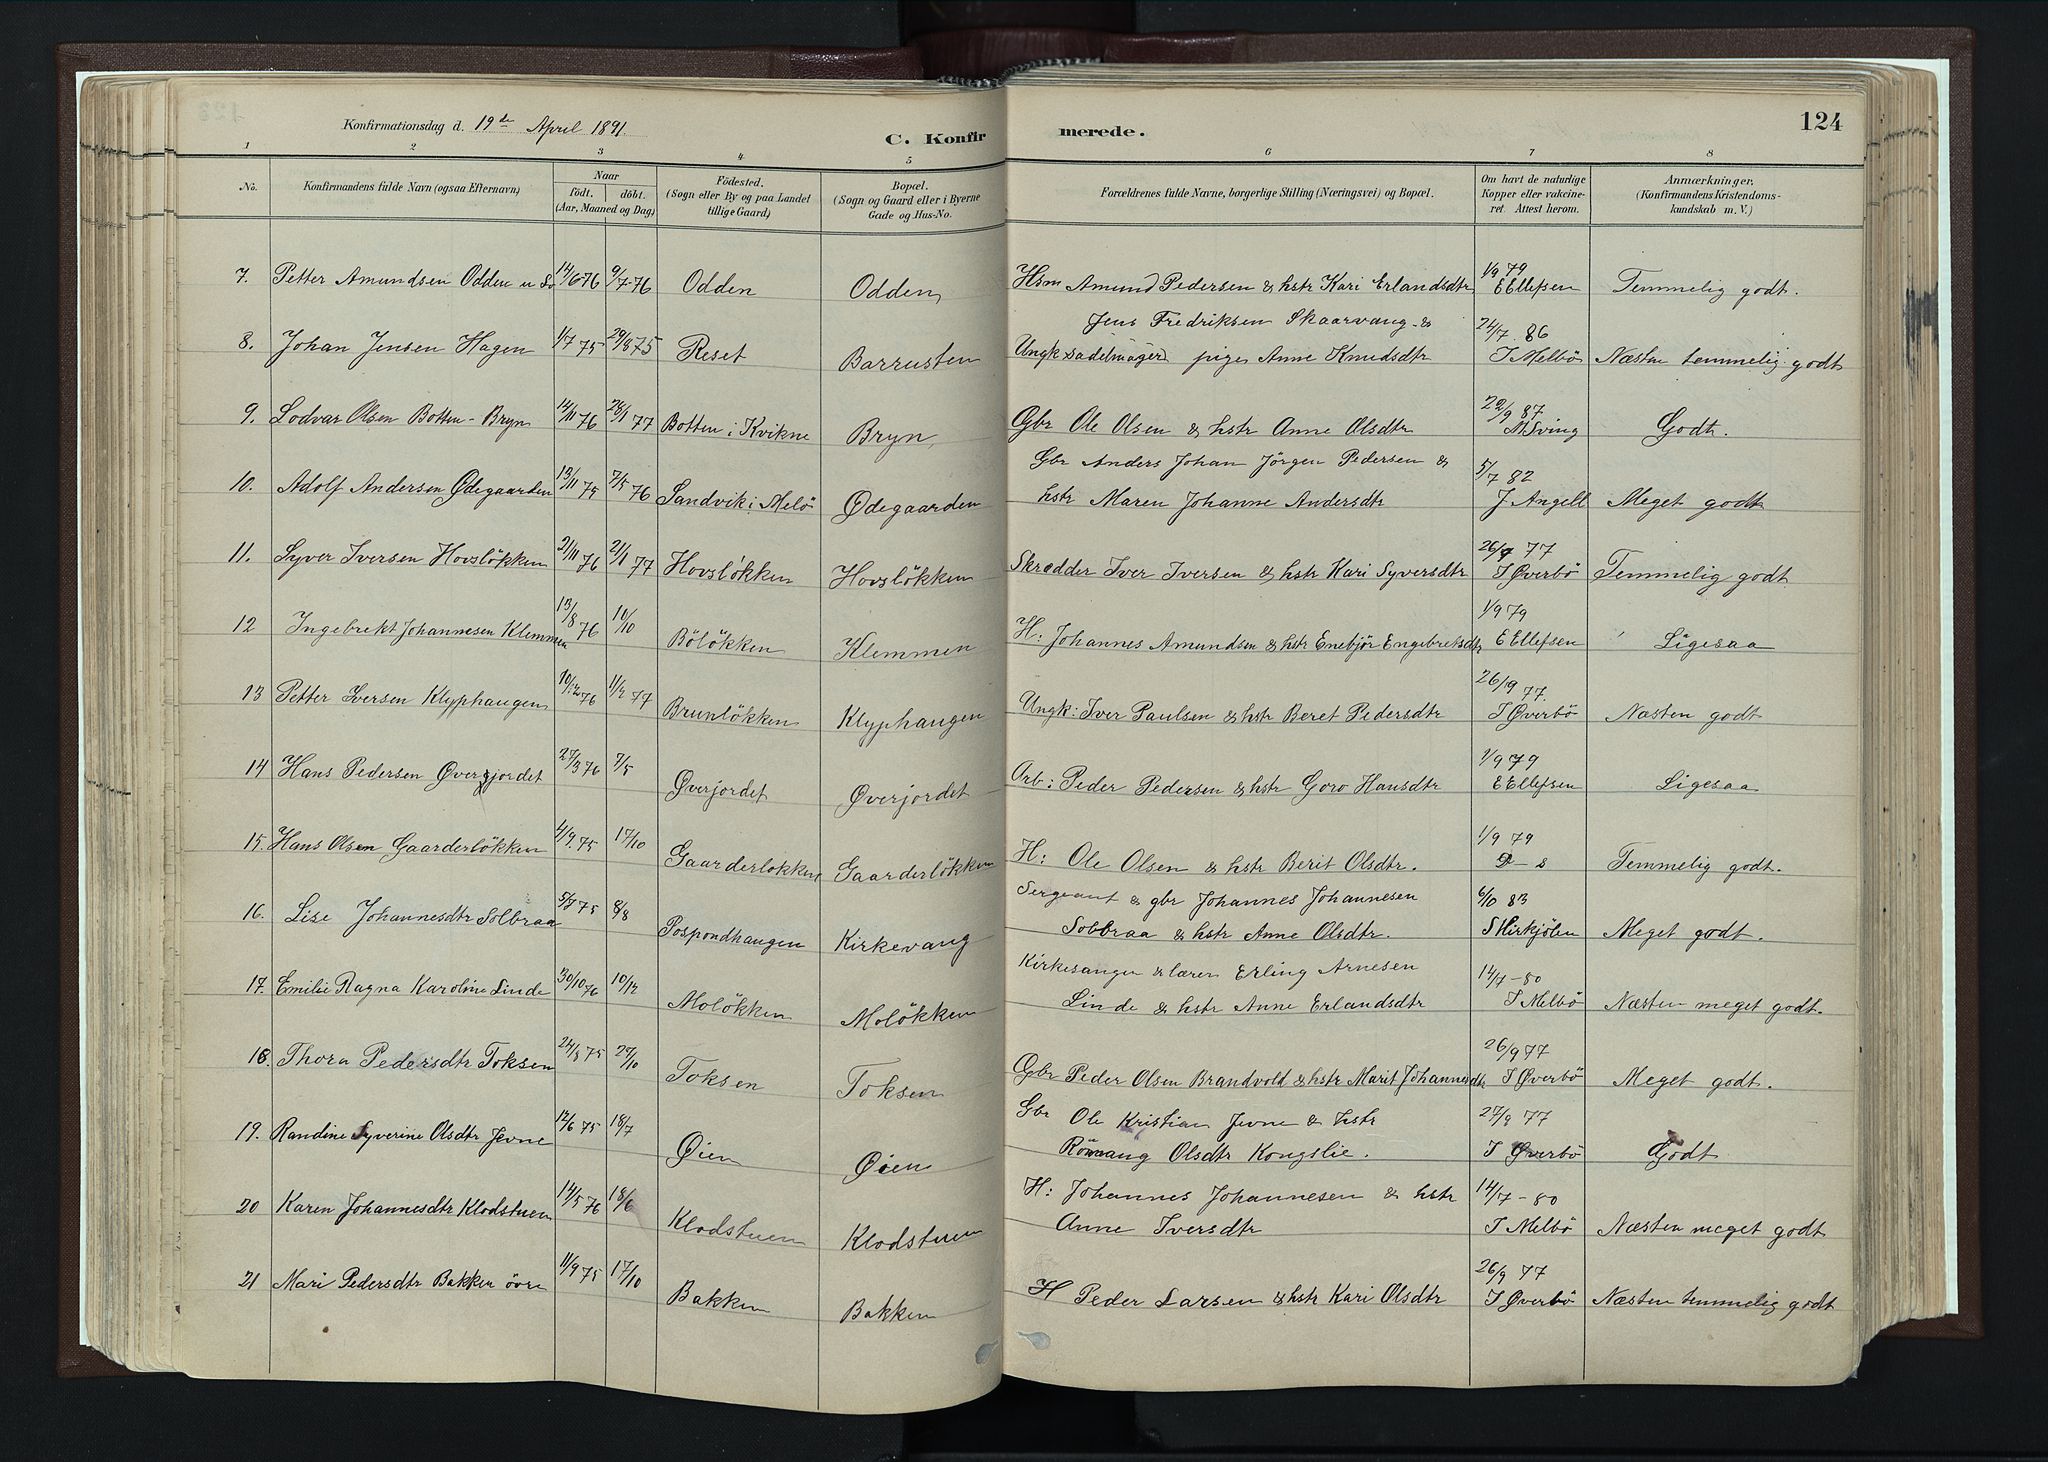 124
Konfirmationsdag d. 19de April 1891
C. Konfirmerede.
1 2 3 4 5 6 7 8
No.
Konfirmandens fulde Navn (ogsaa Efternavn)
Naar
födt. döbt.
(Aar, Maaned og Dag)
Födested.
(Sogn eller By og paa Landet
tillige Gaard)
Bopæl.
(Sogn og Gaard eller i Byerne
Gade og Hus-No.
Forældrenes fulde Navne, borgerlige Stilling (Næringsvei) og Bopæl.
Om havt de naturlige
Kopper eller vakcine-
ret. Attest herom.
Anmærkninger.
(Konfirmandens Kristendoms-
kundskab m. V.)
7. Petter Amundsen Odden 14/6 76 9/7 76 Odden Odden Hsm Amund Pedersen & hstr Kari Erlandsdtr 1/9 79 E Ellefsen Temmelig godt.
8. Johan Jensen Hagen 1/7 75 29/8 75 Reset Barrusten Jens Fredriksen Skaarvang &
Ungk sadelmager pige Anne Knudsdtr 24/7 86 I Melbö Næsten temmelig godt
9. Lodvar Olsen Botten - Bryn 14/11 76 28/1 77 Botten i Kvikne Bryn Gbr Ole Olsen & hstr Anne Olsdtr 29/9 87 M Sving Godt.
10. Adolf Andersen Ødegaarden 13/11 75 7/5 76 Sandvik i Melö Ødegaarden Gbr Anders Johan Jörgen Pedersen &
hstr Maren Johanne Andersdtr 5/7 82 J Angell Meget godt
11. Syver Iversen Hovslökken 21/11 76 21/1 77 Hovslökken Hovslökken Skrædder Iver Iversen & hstr Kari Syversdtr 26/9 77 I Øverbö Temmelig godt
12 Ingebrekt Johannesen Klemmen 13/8 76 10/10 Bölökken Klemmen H: Johannes Amundsen & hstr Enebjör Engebretsdtr 1/9 79 E Ellefsen Ligesaa
13 Petter Iversen Klyphaugen 10/12 76 11/2 77 Brunlökken Klyphaugen Ungk: Iver Paulsen & hstr Beret Pedersdtr 26/9 77 I Øverbö Næsten godt
14 Hans Pedersen Øverjordet 27/3 76 7/5 Øverjordet Øverjordet Arb: Peder Pedersen & hstr Goro Hansdtr 1/9 79 E Ellefsen Ligesaa
15. Hans Olsen Gaarderlökken 4/9 75 17/10 Gaarderlökken Gaarderlökken H: Ole Olsen & hstr Berit Olsdtr. 1/9 79 Temmelig godt.
16. Lise Johannesdtr Solbraa 5/7 75 8/8 Pospondhaugen Kirkevang Sergeant & gbr Johannes Johannesen
Solbraa & hstr Anne Olsdtr. 6/10 83 S Kirkjölen Meget godt.
17. Emilie Ragna Karoline Linde 30/10 76 10/12 Molökken Molökken Kirkesanger & lærer Erling Arnesen
Linde & hstr Anne Erlandsdtr 14/7 - 80 I Melbö Næsten meget godt.
18. Thora Pedersdtr Toksen 24/8 75 29/10 Toksen Toksen Gbr Peder Olsen Brandvold & hstr Marit Johannesdtr 26/9 77 I Øverbö Meget godt.
19. Randine Syverine Olsdtr Jevne 12/6 75 18/7 Øien Øien Gbr Ole Kristian Jevne & hstr
Rönnaug Olsdtr Kongslie. 27/9 77 I Øverbö Godt
20 Karen Johannesdtr Klodstuen 14/5 76 18/6 Klodstuen Klodstuen H: Johannes Johannesen & hstr
Anne Iversdtr 14/7 - 80 I Melbö Næsten meget godt
21 Mari Pedersdtr Bakken övre 11/9 75 17/10 Bakken Bakken H Peder Larsen & hstr Kari Olsdtr 26/9 77 I Øverbö Næsten temmelig godt